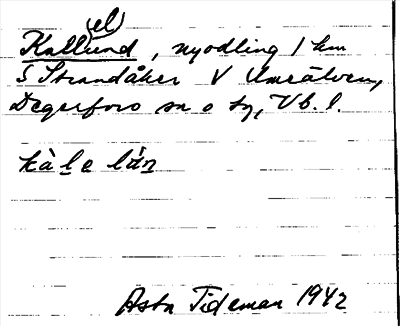 el
Kallund, nyodling 1 km
S Strandåker V Umeälven,
Degerfors sn o tg, Vb. l.
kàle lán
Asta Tideman 1942